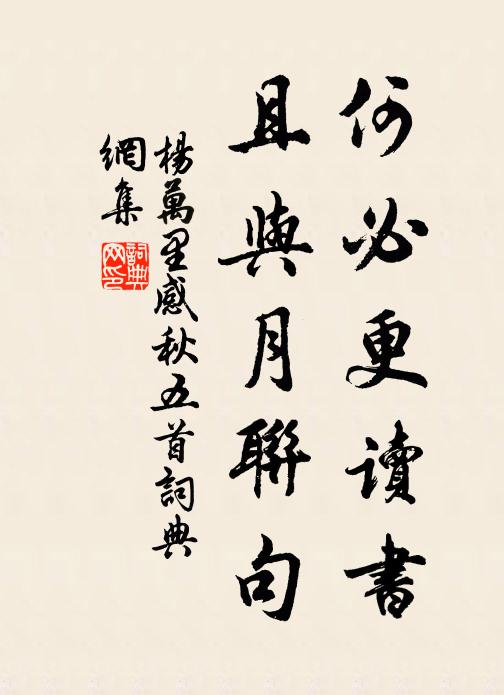 何必更讀書
且與月聯句
楊萬里感秋五首詞典
網集
詞典網印